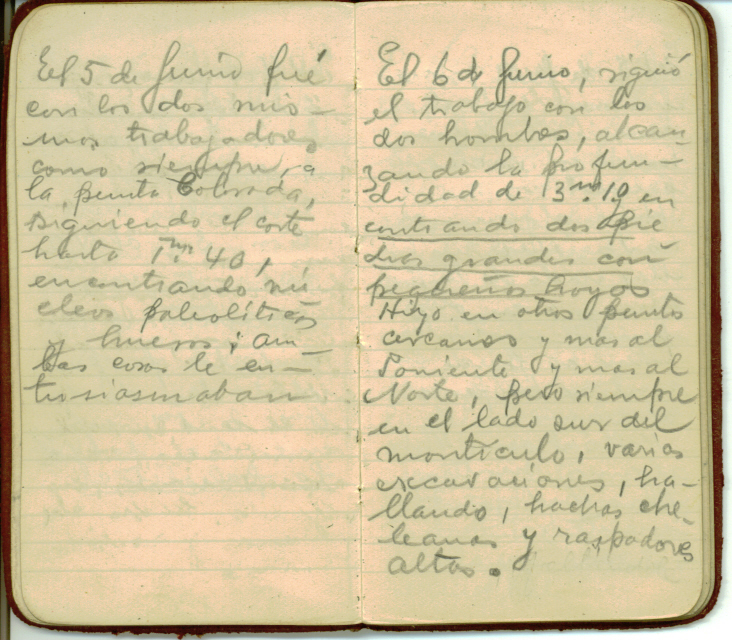 El 5 de Junio fué
con los dos mis-
mos trabajadores
como siempre, a
la punta Colorada,
siguiendo el corte
hasta 1m. 40,
encontrando nú
cleos paleolíticos
y huesos; am-
bas cosas le en-
tusiasmaban
El 6 de Junio, siguió
el trabajo con los
dos hombres, alcan-
zando la profun-
didad de 3m. 10 y en
contrando dos pie
dras grandes con
pequeños hoyos
Hizo en otros puntos
cercanos y mas al
Poniente y mas al
Norte, pero siempre
en el lado sur del
monticulo, varias
excavaciones, ha-
llando, hachas che-
leanas y raspadores
altos.